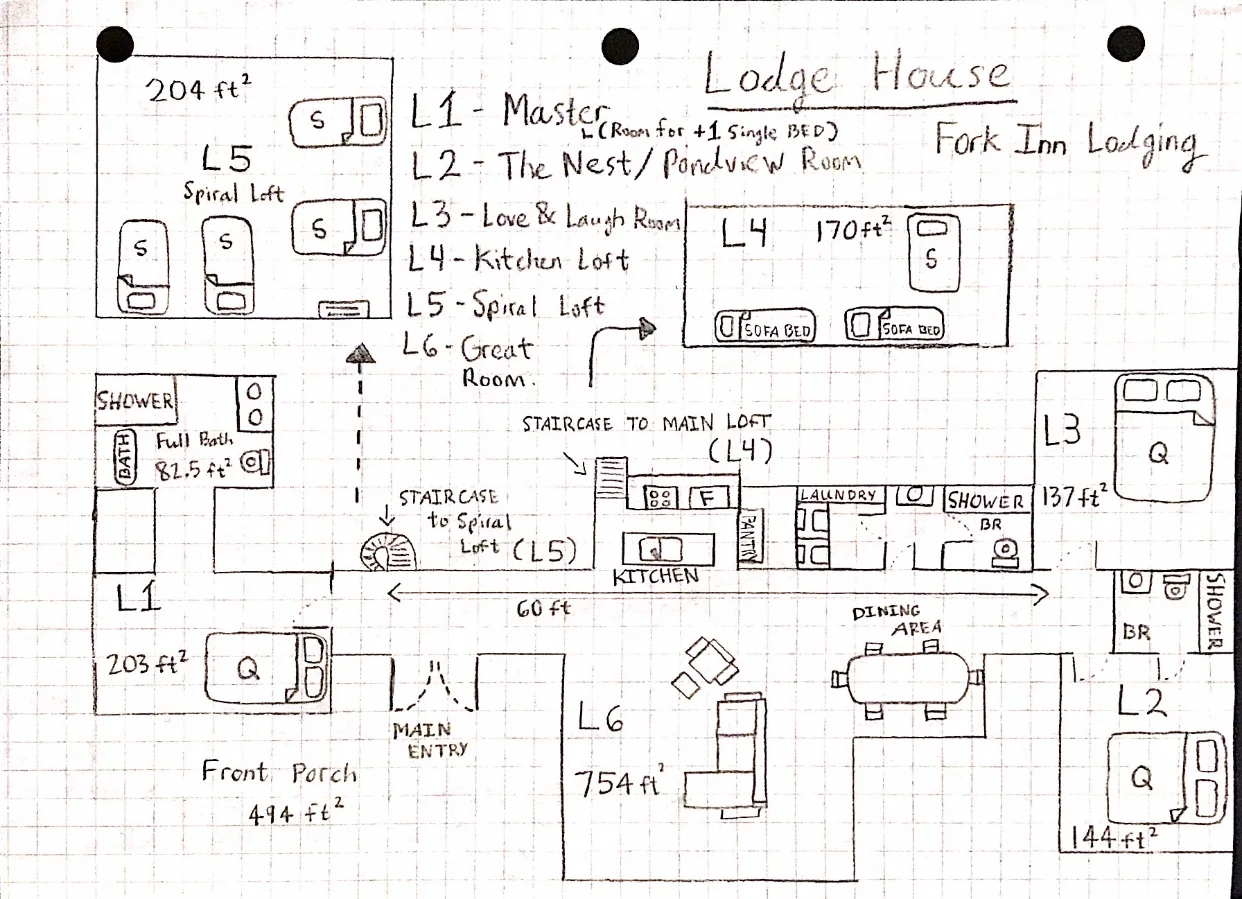 Lodge House
Fork Inn Lodging
L1 - Master
(Room for +1 Single BED)
L2 - The Nest/Pondview Room
L3 - Love & Laugh Room
L4 - Kitchen Loft
L5 - Spiral Loft
L6 - Great
Room.
204 ft²
S
L5
Spiral Loft
S
S
S
L4
170 ft²
S
SOFA BED
SOFA BED
SHOWER
BATH
Full Bath
82.5 ft²
STAIRCASE
to Spiral
Loft (L5)
STAIRCASE TO MAIN LOFT
(L4)
F
PANTRY
KITCHEN
LAUNDRY
SHOWER
BR
L3
Q
137 ft²
60 ft
L1
203 ft²
Q
MAIN
ENTRY
Front Porch
494 ft²
L6
754 ft²
DINING
AREA
BR
SHOWER
L2
Q
144 ft²